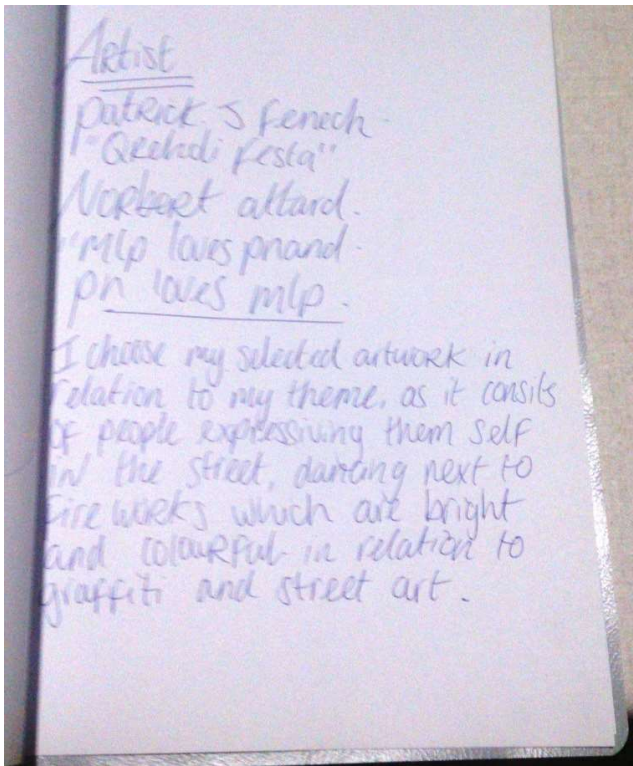 Artist
Patrick J Fenech
"Qrehdi Festa"
Norbert attard.
"Mlp loves pnand
pn loves mlp.
I choose my selected artwork in
relation to my theme, as it consits
of people expressiving them self
in the street, dancing next to
fire works which are bright
and colourful in relation to
graffiti and street art.